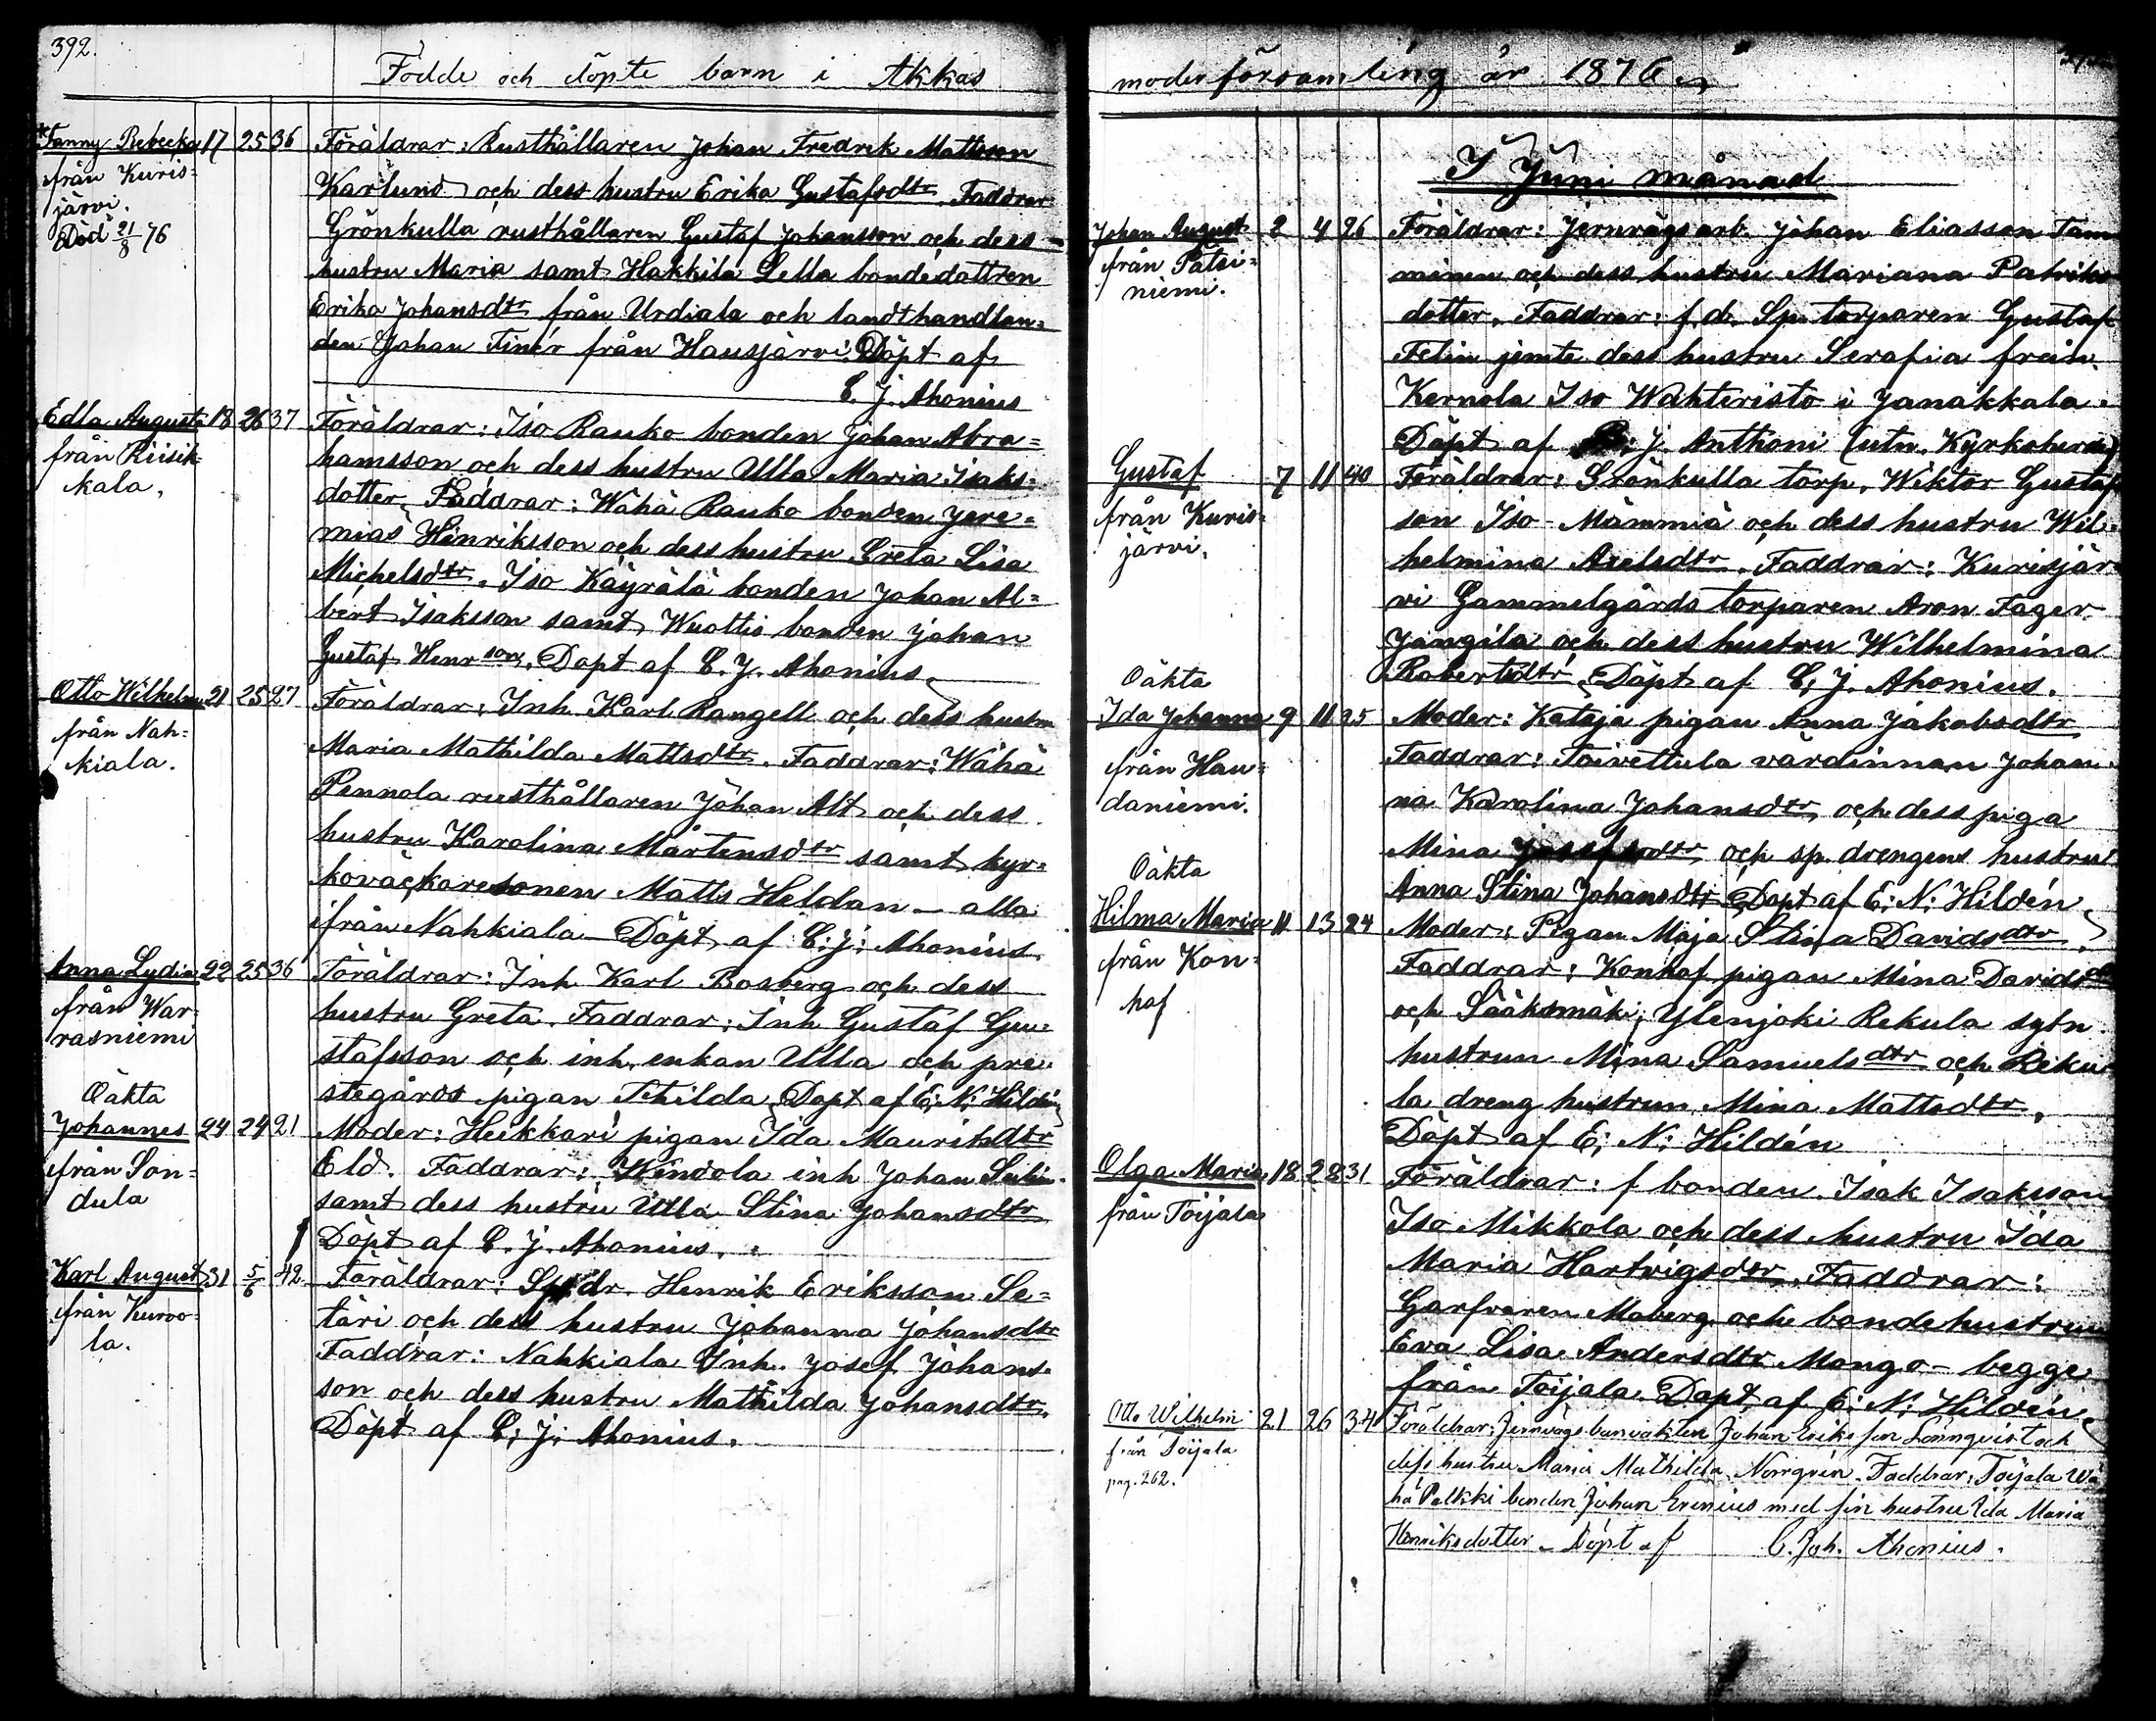 392.
Födde och döpte barn i Akkas
Fanny Rebecka 17 25 36 Föräldrar: Rusthållaren Johan Fredrik Mattsson
från Kuris=
järvi.
Död 21/8 76
Karlund och dess hustru Erika Gustafsdtr. Faddrar
Grönkulla rusthållaren Gustaf Johansson och dess
hustru Maria samt Hakkila Lella bondedottren
Erika Johansdtr från Urdiala och landthandlan=
den Johan Finér från Hausjärvi. Döpt af
C. J. Ahonius
Edla Augusta 18 26 37 Föräldrar: Iso Rauko bonden Johan Abra=
från Riisik
kala.
hamsson och dess hustru Ulla Maria Isaks=
dotter. Faddrar: Wähä Rauko bonden Jere=
mias Hinriksson och dess hustru Greta Lisa
Michelsdtr. Iso Käyrälä bonden Johan Al=
bert Isaksson samt Wuottis bonden Johan
Gustaf Henrson. Döpt af C. J. Ahonius.
Otto Wilhelm 21 25 27 Föräldrar: Inh. Karl Rangell och dess hustru
från Nah=
kiala.
Maria Mathilda Mattsdtr. Faddrar: Wähä
Pennola rusthållaren Johan Alt och dess
hustru Karolina Mårtensdtr samt kyr=
koväckaresonen Matts Heldan – alla
ifrån Nahkiala – Döpt af C: J: Ahonius.
Anna Lydia 22 25 36 Föräldrar: Inh Karl Rosberg och dess
från War=
rasniemi
hustru Greta. Faddrar: Inh Gustaf Gu=
stafsson och inh. enkan Ulla och pre=
stegårds pigan Thilda. Döpt af E: N: Hildén
Oäkta
Johannes 24 24 21 Moder: Heikkari pigan Ida Mauritsdtr
från Son=
dula
Eld. Faddrar: Windola inh Johan Selin
samt dess hustru Ulla Stina Johansdtr
Döpt af C. J. Ahonius.
Karl August 31 5/6 42 Föräldrar: Sp. dr. Henrik Eriksson Se=
från Kurvo=
la.
täri och dess hustru Johanna Johansdtr
Faddrar: Nahkiala Inh. Josef Johans=
son och dess hustru Mathilda Johansdtr.
Döpt af C: J: Ahonius.
moderförsamling år 1876
I Juni månad
Johan August 2 4 26 Föräldrar: Jernvägsarb. Johan Eliasson Tam
från Patsi=
niemi.
minen och dess hustru Mariana Patriks
dotter. Faddrar: f. d. Sp. torparen Gustaf
Felin jemte dess hustru Serafia från
Kernola Iso Wahteristo i Janakkala.
Döpt af J. Anthoni (utn. Kyrkoherde)
Gustaf 7 11 40 Föräldrar: Grönkulla torp. Wiktor Gustaf
från Kuris=
järvi.
son Iso-Mämmiä och dess hustru Wil=
helmina Axelsdtr. Faddrar: Kurisjär
vi Gammelgårds torparen Aron Fager
Jangila och dess hustru Wilhelmina
Robertsdtr. Döpt af C; J. Ahonius.
Oäkta
Ida Johanna 9 11 25 Moder: Kataja pigan Anna Jakobsdtr
från Hau=
daniemi.
Faddrar: Toivettula värdinnan Johan
na Karolina Johansdtr och dess piga
Mina Josefsdtr och sp. drengens hustru
Anna Stina Johansdtr. Döpt af E: N: Hildén
Oäkta
Hilma Maria 11 13 24 Moder: Pigan Maja Stina Davidsdtr
från Kon=
hof
Faddrar: Konhof pigan Mina Davidsdtr
och Sääksmäki, Ylenjoki Rekula sytn.
hustrun Mina Samuelsdtr och Reku
la dreng hustrun Mina Mattsdtr.
Döpt af E; N: Hildén
Olga Maria 18 28 31 Föräldrar: f bonden Isak Isaksson
från Toijala
Iso Mikkola och dess hustru Ida
Maria Hartvigsdtr. Faddrar:
Garfvaren Moberg och bondehustrun
Eva Lisa Andersdtr Mango – begge
från Toijala. Döpt af E: N: Hildén
Otto Wilhelm 21 26 34 Föräldrar: Jernvägs banvakten Johan Eriksson Lönnqvist och
från Toijala
pag. 262.
dess hustru Maria Mathilda Norrgrén. Faddrar: Toijala Wä
hä Palkki bonden Johan Erenius med sin hustru Ida Maria
Henriksdotter – Döpt af C. Joh. Ahonius.